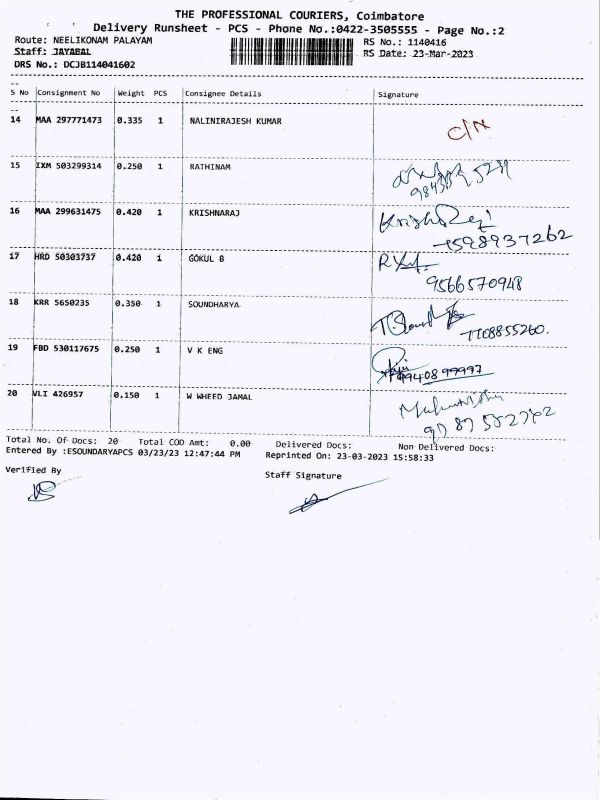 THE PROFESSIONAL COURIERS, Coimbatore
Delivery Runsheet - PCS - Phone No.:0422-3505555 - Page No.:2
Route: NEELIKONAM PALAYAM RS No.: 1140416
Staff: JAYABAL RS Date: 23-Mar-2023
DRS No.: DCJB114041602
S No Consignment No Weight PCS Consignee Details Signature
14 MAA 297771473 0.335 1 NALINIRAJESH KUMAR C/N
15 IXM 503299314 0.250 1 RATHINAM
16 MAA 299631475 0.420 1 KRISHNARAJ
17 HRD 50303737 0.420 1 GOKUL B
9566570948
18 KRR 5650235 0.350 1 SOUNDHARYA
7708855260.
19 FBD 530117675 0.250 1 V K ENG
20 VLI 426957 0.150 1 W WHEED JAMAL
Total No. Of Docs: 20 Total COD Amt: 0.00 Delivered Docs: Non Delivered Docs:
Entered By :ESOUNDARYAPCS 03/23/23 12:47:44 PM Reprinted On: 23-03-2023 15:58:33
Verified By Staff Signature